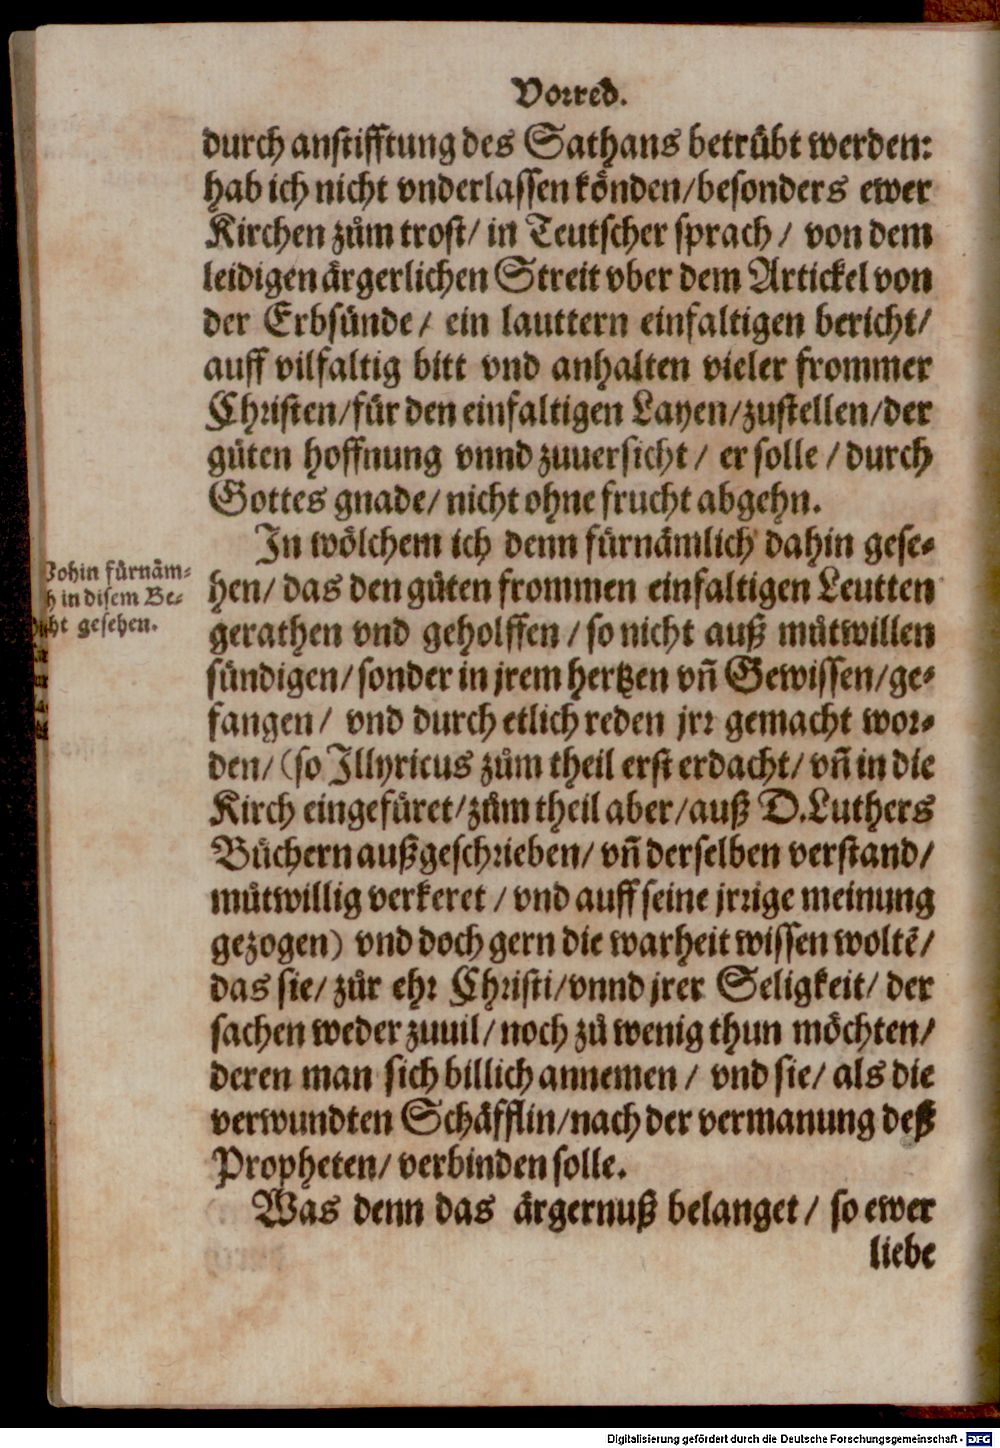 Vorred.
durch anstifftung des Sathans betrübt werden:
hab ich nicht vnderlassen könden/besonders ewer
Kirchen zům trost/ in Teutscher sprach / von dem
leidigen ärgerlichen Streit vber dem Artickel von
der Erbsünde / ein lauttern einfaltigen bericht/
auff vilfaltig bitt vnd anhalten vieler frommer
Christen/für den einfaltigen Layen/zustellen/der
gůten hoffnung vnnd zuuersicht / er solle / durch
Gottes gnade/ nicht ohne frucht abgehn.
In wölchem ich denn fürnämlich dahin gese-
hen/ das den gůten frommen einfaltigen Leutten
gerathen vnd geholffen / so nicht auß můtwillen
sündigen/ sonder in jrem hertzen vñ Gewissen/ge-
fangen / vnd durch etlich reden jrr gemacht wor-
den/ (so Illyricus zům theil erst erdacht/ vñ in die
Kirch eingefüret/zům theil aber/auß D.Luthers
Büchern außgeschrieben/ vñ derselben verstand/
můtwillig verkeret / vnd auff seine jrrige meinung
gezogen) vnd doch gern die warheit wissen woltẽ/
das sie/ zůr ehr Christi/vnnd jrer Seligkeit/ der
sachen weder zuuil/ noch zů wenig thun möchten/
deren man sich billich annemen / vnd sie/ als die
verwundten Schäfflin/nach der vermanung deß
Propheten/ verbinden solle.
Was denn das ärgernuß belanget / so ewer
liebe
fürnäm-
in disem Be-
gesehen.
Digitalisierung gefördert durch die Deutsche Forschungsgemeinschaft - DFG